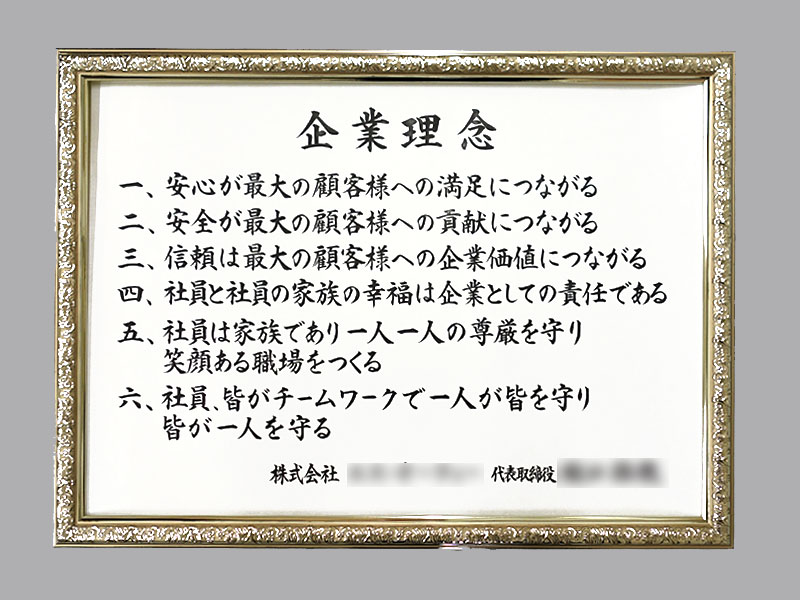 企業理念
一、安心が最大の顧客様への満足につながる
二、安全が最大の顧客様への貢献につながる
三、信頼は最大の顧客様への企業価値につながる
四、社員と社員の家族の幸福は企業としての責任である
五、社員は家族であり一人一人の尊厳を守り
笑顔ある職場をつくる
六、社員、皆がチームワークで一人が皆を守り
皆が一人を守る
株式会社 代表取締役